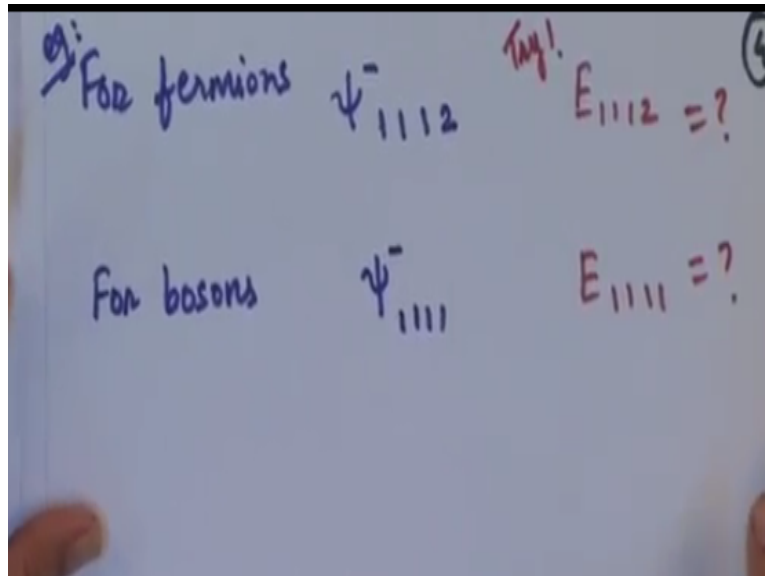 eg:
For fermions ψ⁻₁₁₁₂ Try! E₁₁₁₂ = ?
For bosons ψ⁻₁₁₁₁ E₁₁₁₁ = ?